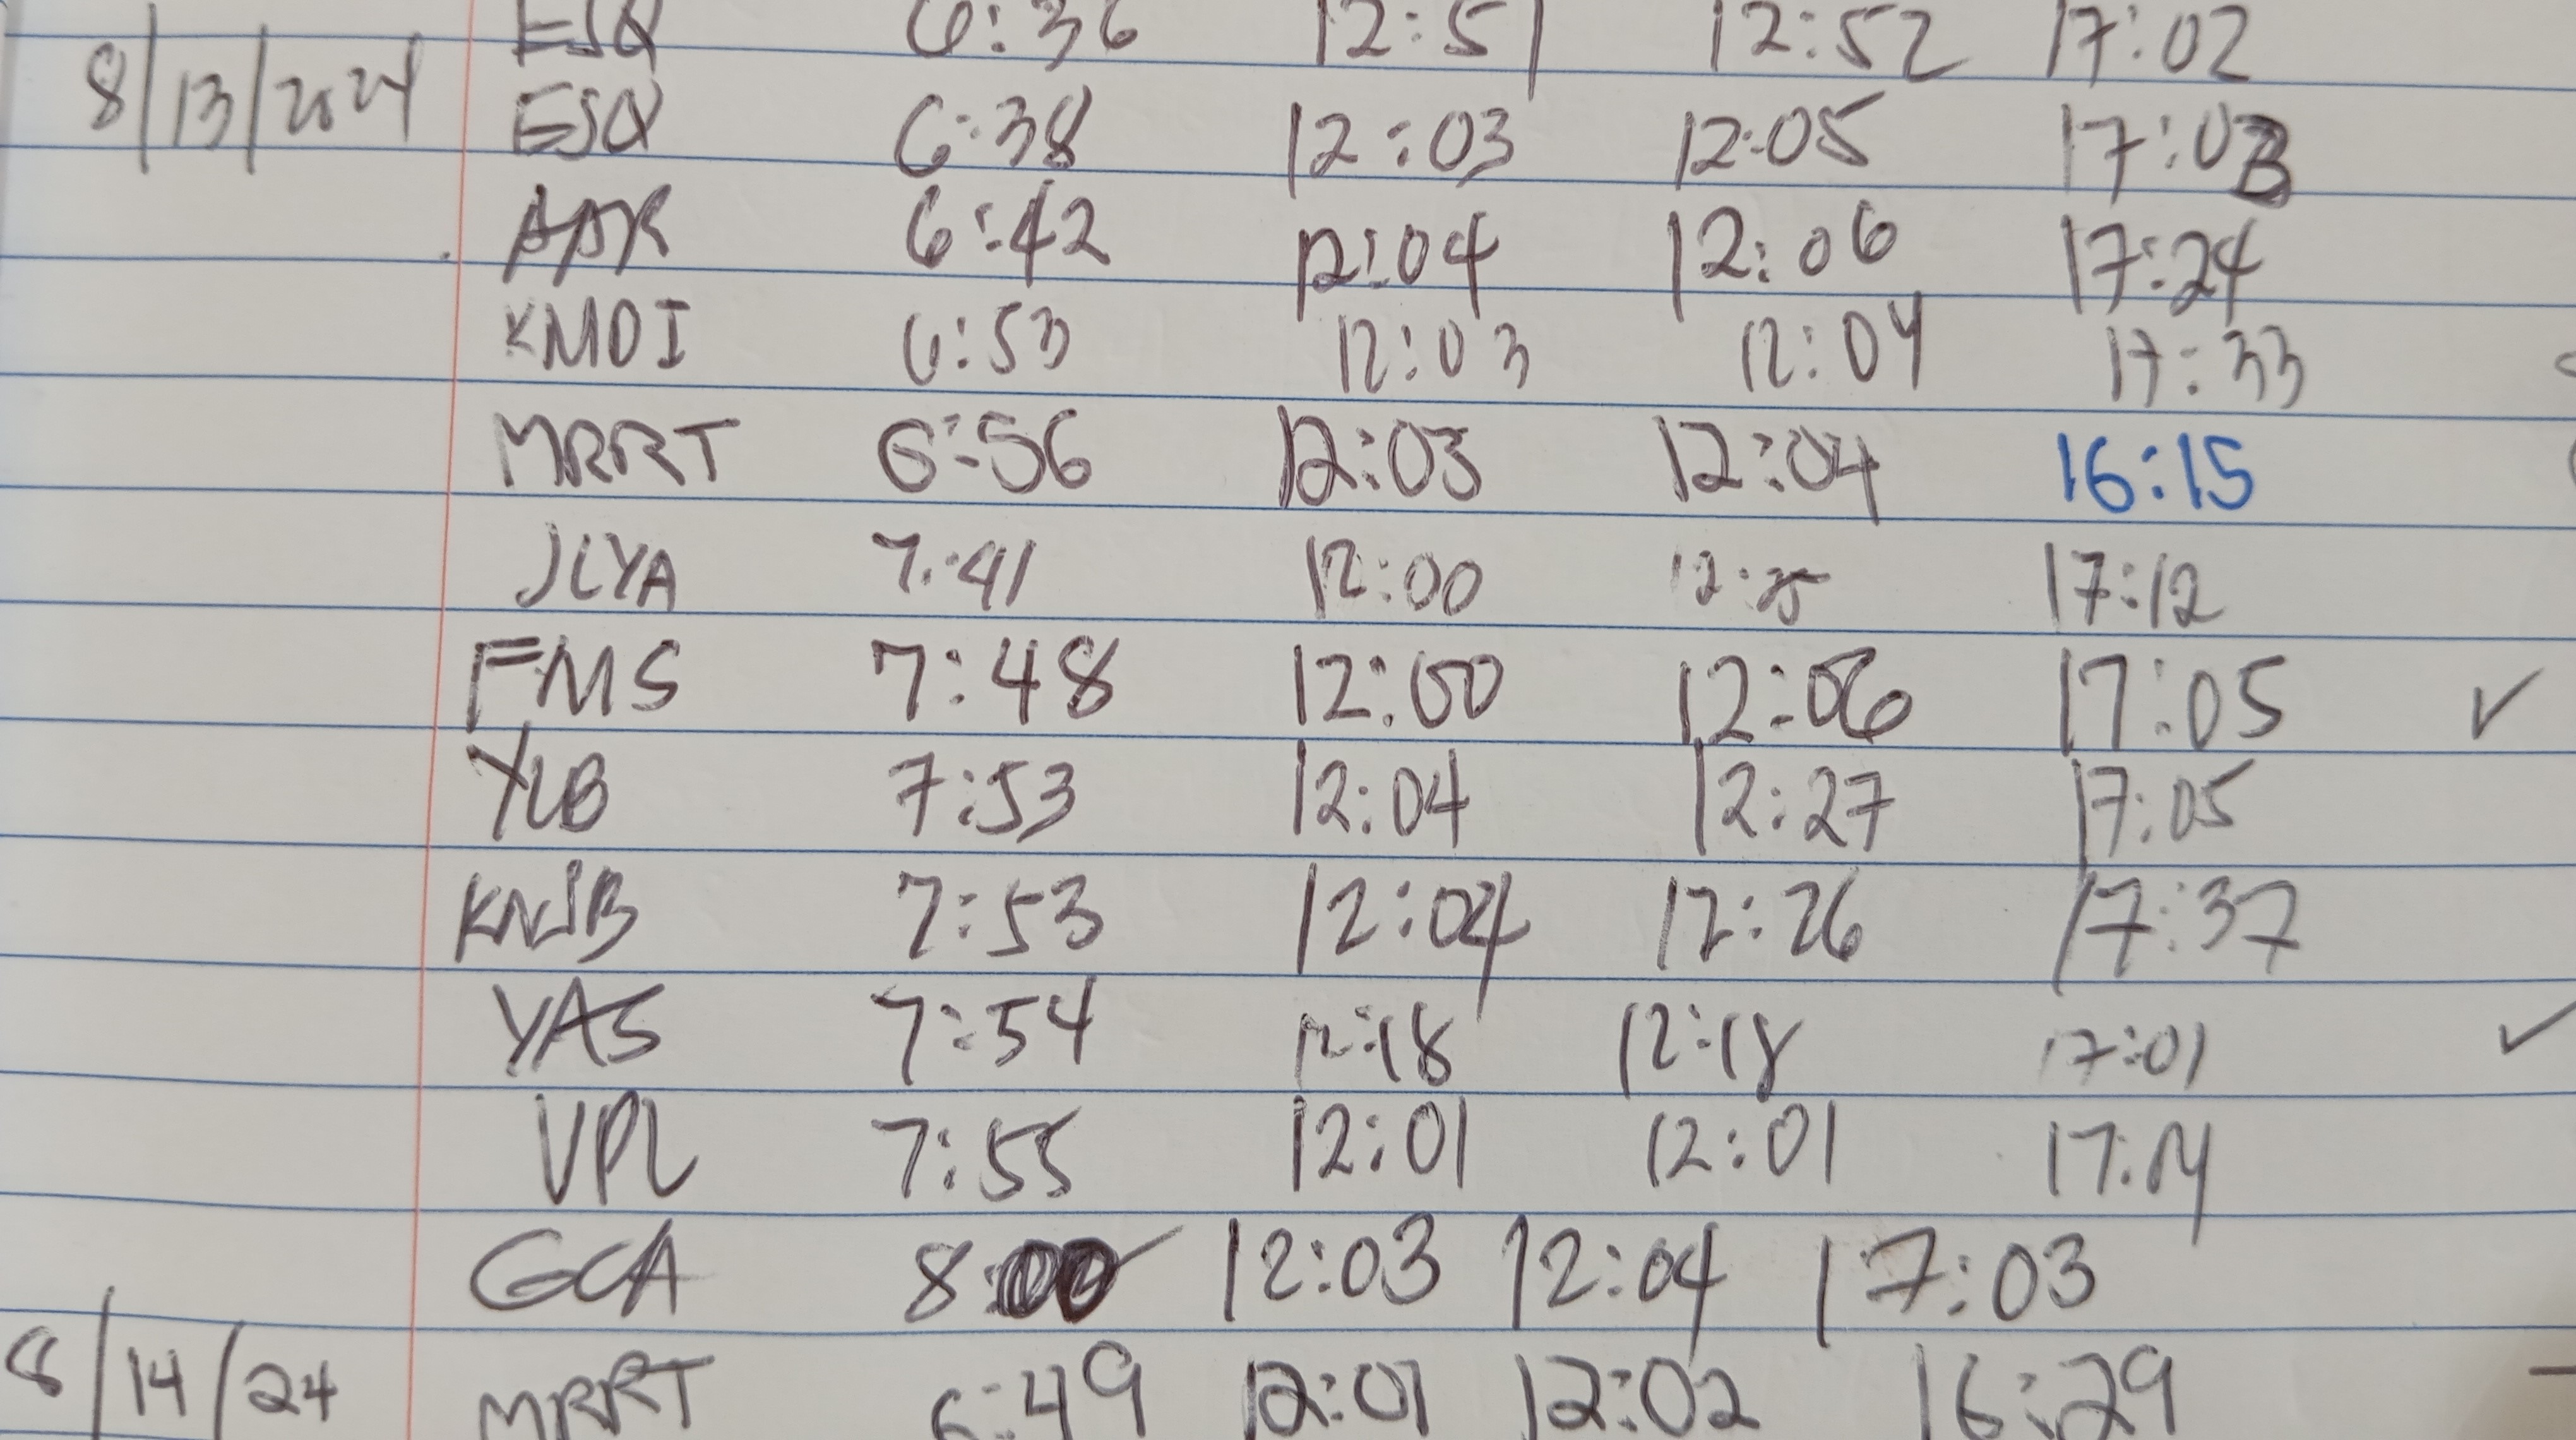 ESQ 6:36 12:51 12:52 17:02
8/13/2024 ESQ 6:38 12:03 12:05 17:03
AAR 6:42 12:04 12:06 17:24
KMDI 6:53 12:03 12:04 17:33
MRRT 6:56 12:03 12:04 16:15
JLYA 7:41 12:00 12:25 17:12
FMS 7:48 12:00 12:06 17:05 ✓
YLB 7:53 12:04 12:27 17:05
KNJB 7:53 12:04 12:26 17:37
YAS 7:54 12:18 12:18 17:01 ✓
VPL 7:55 12:01 12:01 17:14
GCA 8:00 12:03 12:04 17:03
8/14/24 MRRT 6:49 12:01 12:02 16:29